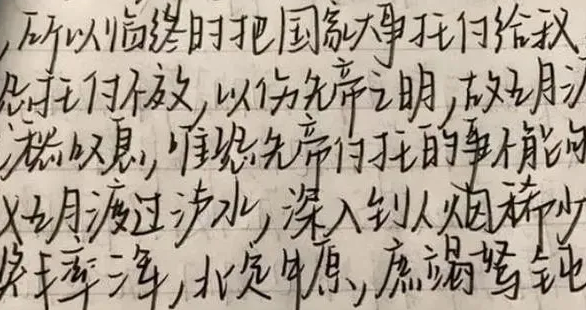 ,所以临终时把国家大事托付给我
恐托付不效,以伤先帝之明,故五月
叹息,唯恐先帝付托的事不能
五月渡过泸水,深入到人烟稀少
率三军,北定中原,庶竭驽钝